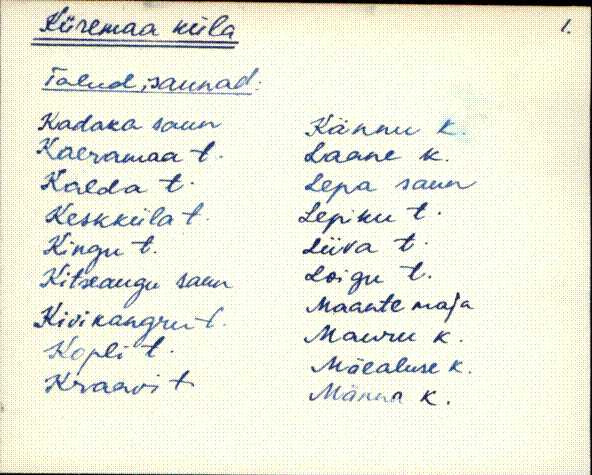 Küremaa küla
1.
Talud, saunad:
Kadaka saun
Kaeramaa t.
Kalda t.
Keskküla t.
Kingu t.
Kitseaugu saun
Kivikangru t.
Kopli t.
Kraavi t
Kännu k.
Laane k.
Lepa saun
Lepiku t.
Liiva t.
Loigu t.
Maante maja
Mauru k.
Mäealuse k.
Männa k.